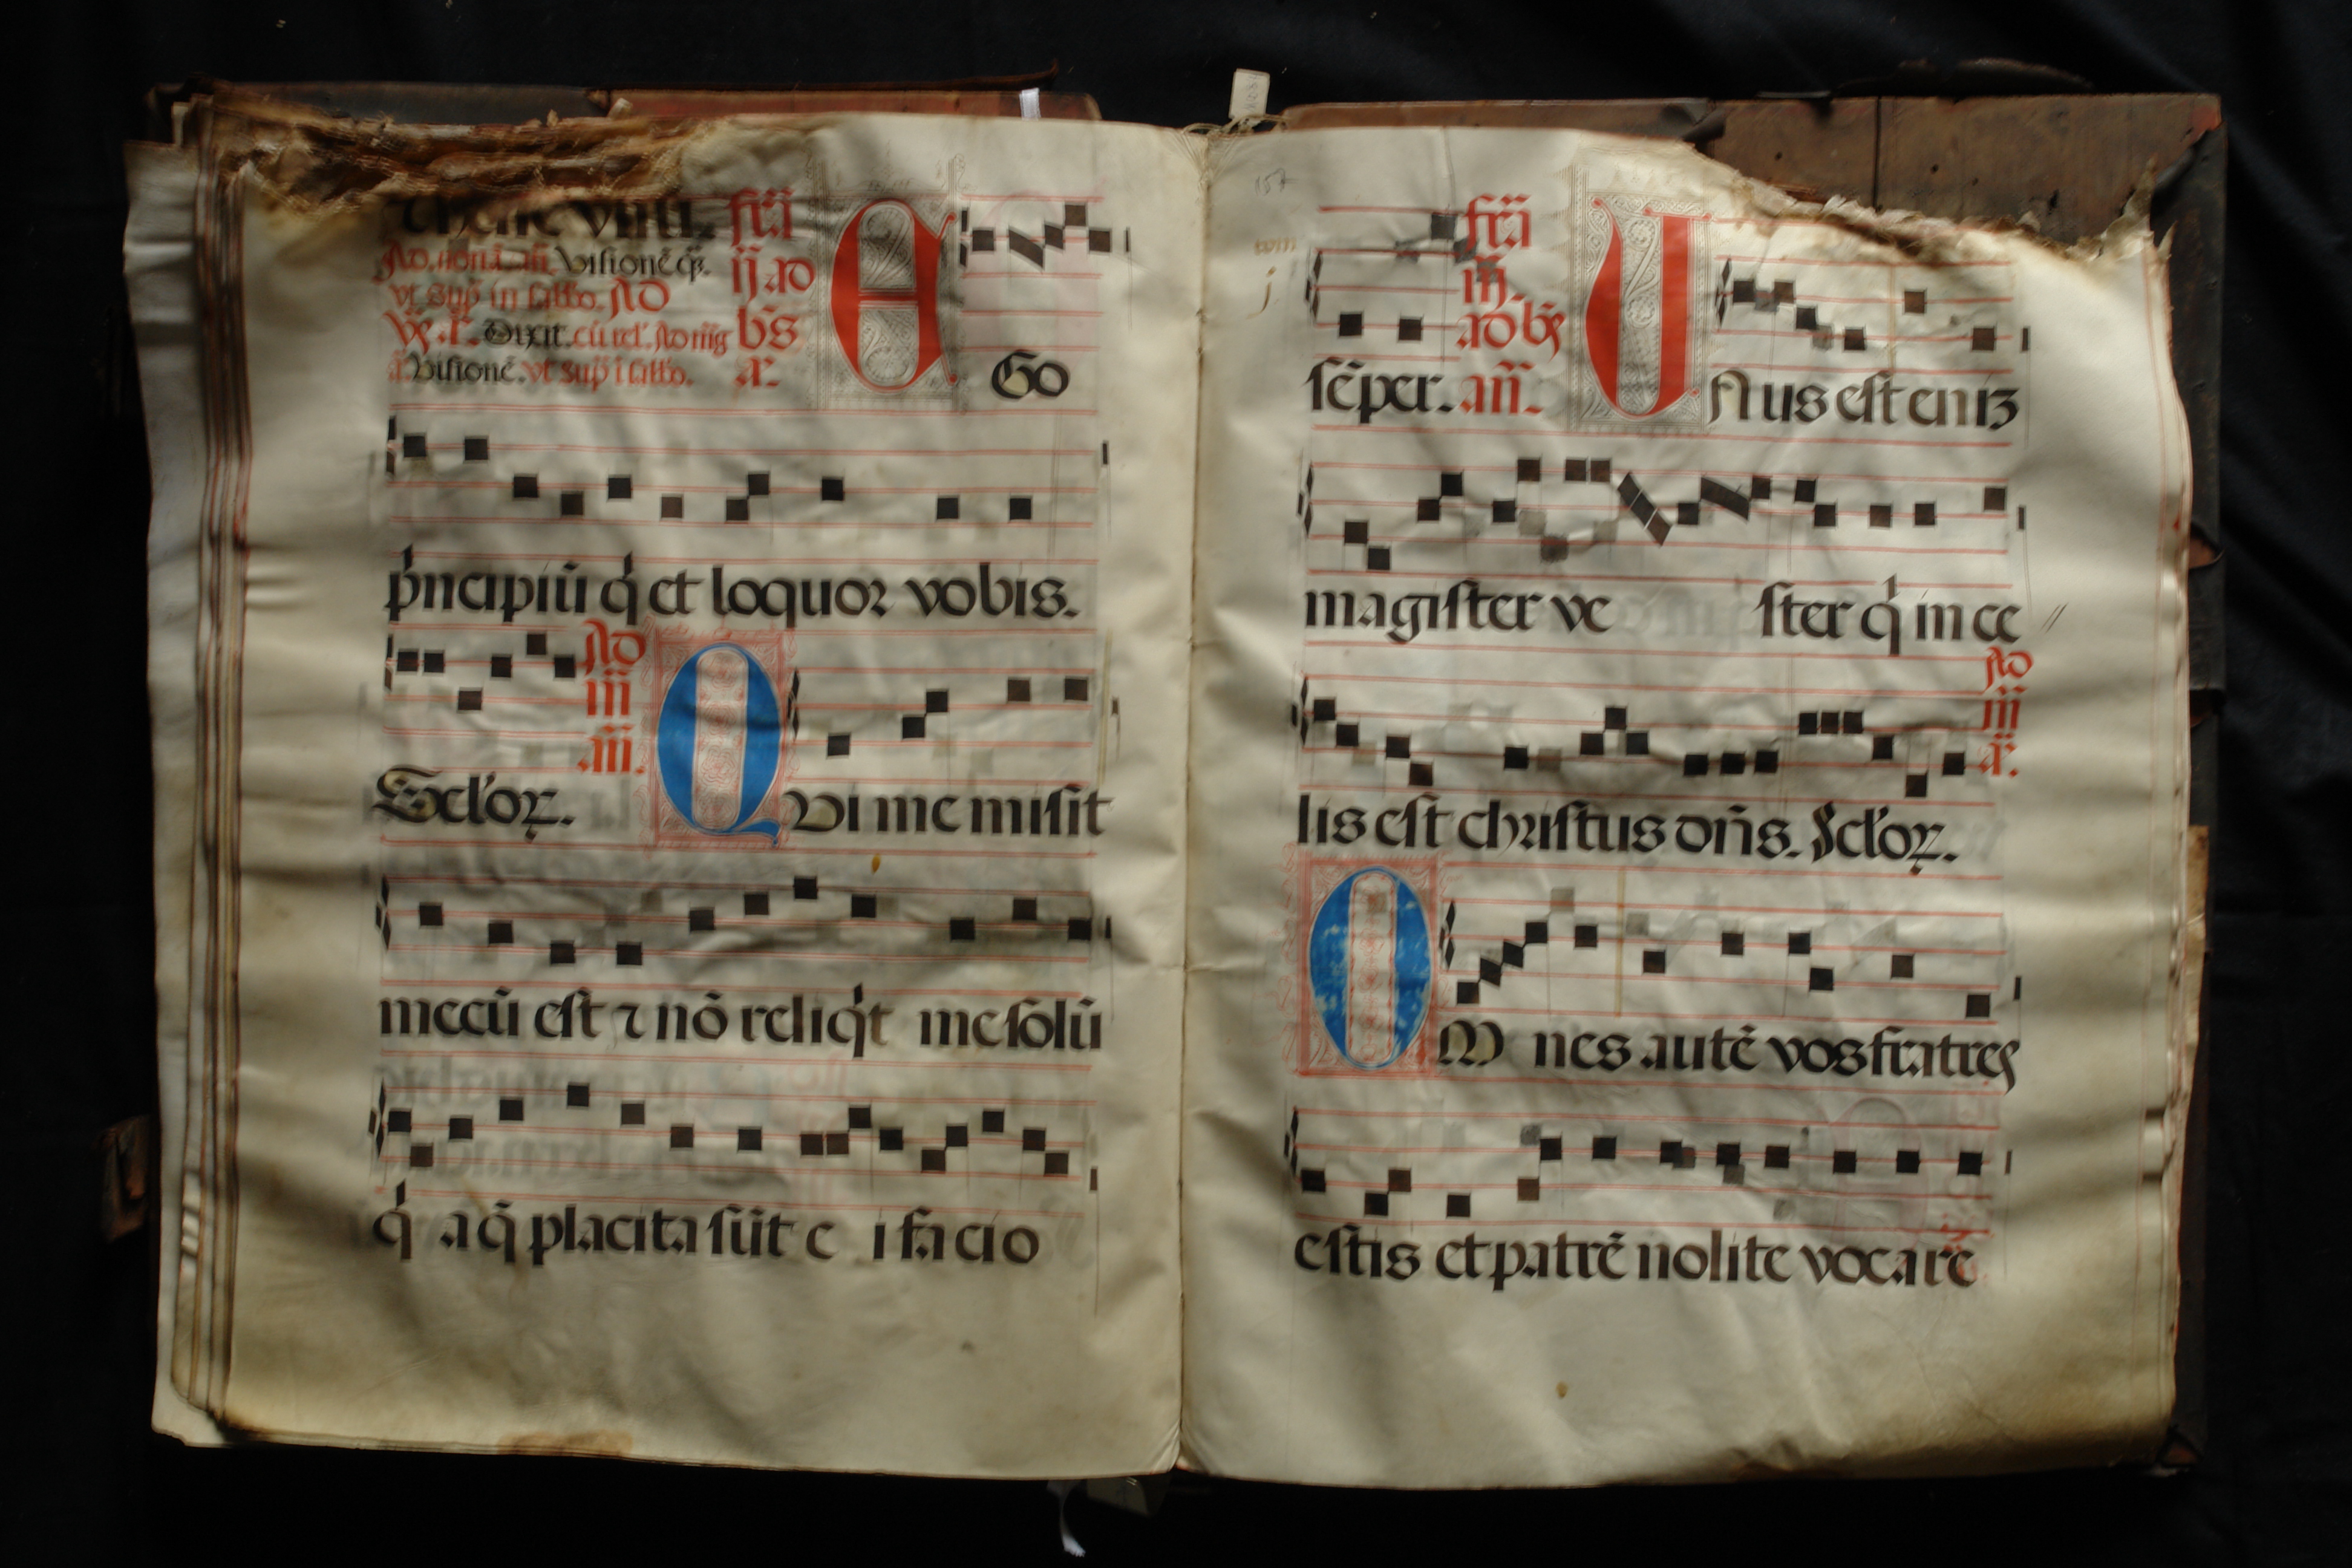 fr̃i
Ad. noñã. añ. Visionē q̃3.
ij ad
vt sup̃ in sab̃bo. Ad
vp̃. ã. Dixit. cū rel'. Ad mãg
b̃s
ã. Visionē. vt sup̃ i sab̃bo.
ã.
E Go
p̓ncipiū q̓ et loquor vobis.
Ad
m̃
añ.
Eucl'oꝝ. Q Vi me misit
mecū est ⁊ nō reliq̓t me solū
q̓ a q̄ placita sūt e i facio
157
j
fr̃i
iij.
ad b̃s
sēper. añ. V Nus est eniz
magister ve ster q̓ in ce
Ad
m̃
ã.
lis est christus dñs. Scl'oꝝ.
O M nes autē vos fratres
estis et patrē nolite vocare